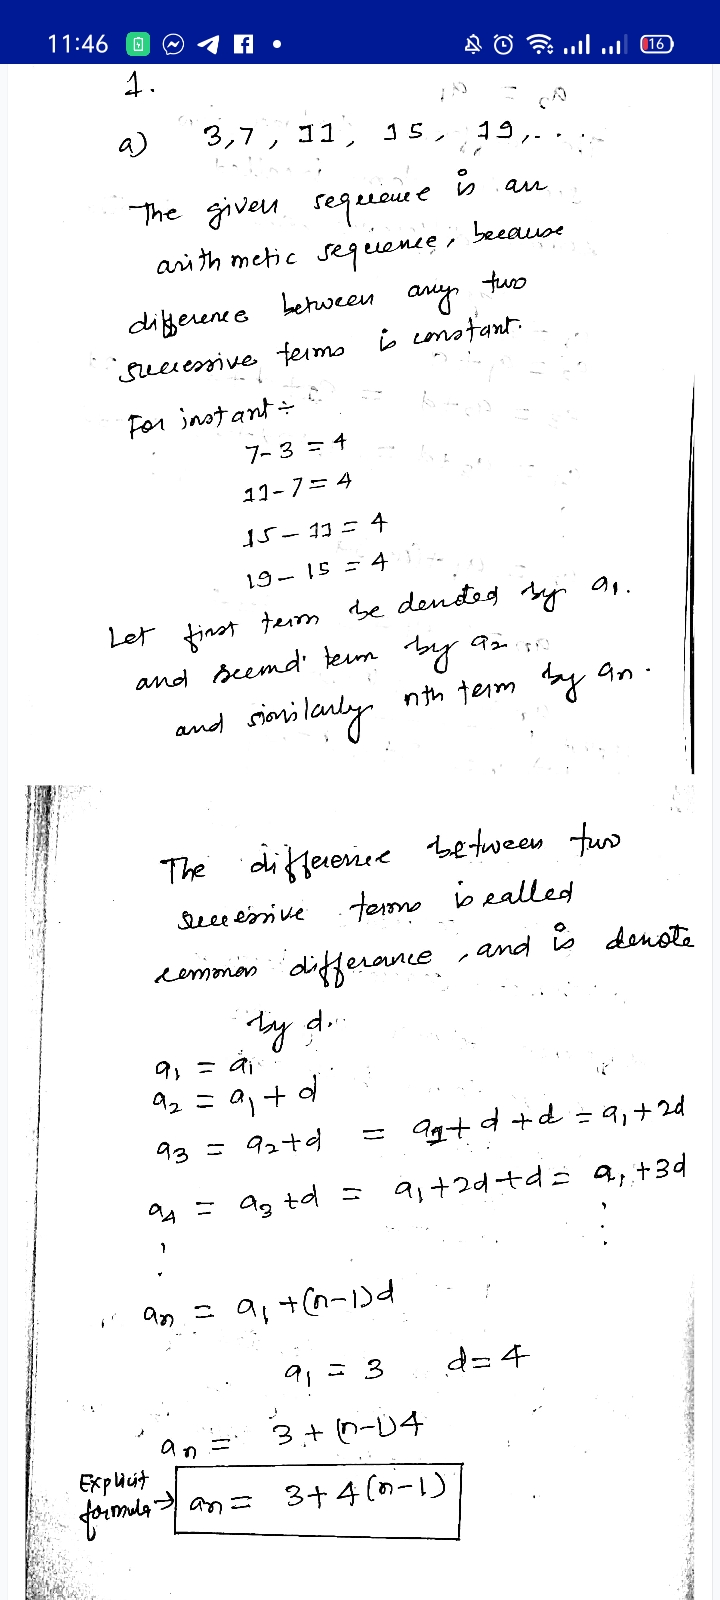 11:46
16
1.
a) 3,7, 11, 15, 19,...
The given sequence is an
arithmetic sequence, because
difference between any two
successive terms is constant.
For instant ÷
7-3 = 4
11-7 = 4
15-11 = 4
19-15 = 4
Let first term be denoted by a₁.
and second term by a₂
and similarly nth term by an.
The difference between two
successive terms is called
common differance, and is denote
by d.
a₁ = a₁
a₂ = a₁ + d
a₃ = a₂+d = a₁+d+d = a₁+2d
a₄ = a₃+d = a₁+2d+d = a₁+3d
an = a₁+(n-1)d
a₁ = 3 d=4
an = 3+(n-1)4
Explicit
formula → an = 3+4(n-1)